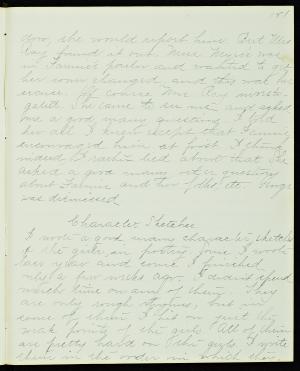 dow, she would report him. But Miss
Ray found it out. Miss Meyer was
in Fannie's parlor and wanted to get
her room changed, and this was her
excuse. Of course Mrs Ray investi-
gated. She came to see me and asked
me a good many questions. I told
her all I knew except that Fanny
encouraged him at first. I think
indeed I rather lied about that. She
asked a good many other questions
about Fannie and her folks etc.
was dismissed
Character Sketches
I wrote a good many character sketches
of the girls, in poetry, some I wrote
last year and some I finished
only a few weeks ago. I didn't spend
much time on any of them. They
are only rough rhymes, but in
some of them I hit on just the
weak points of the girls. All of them
are pretty hard on the girls. I write
them in the order in which they